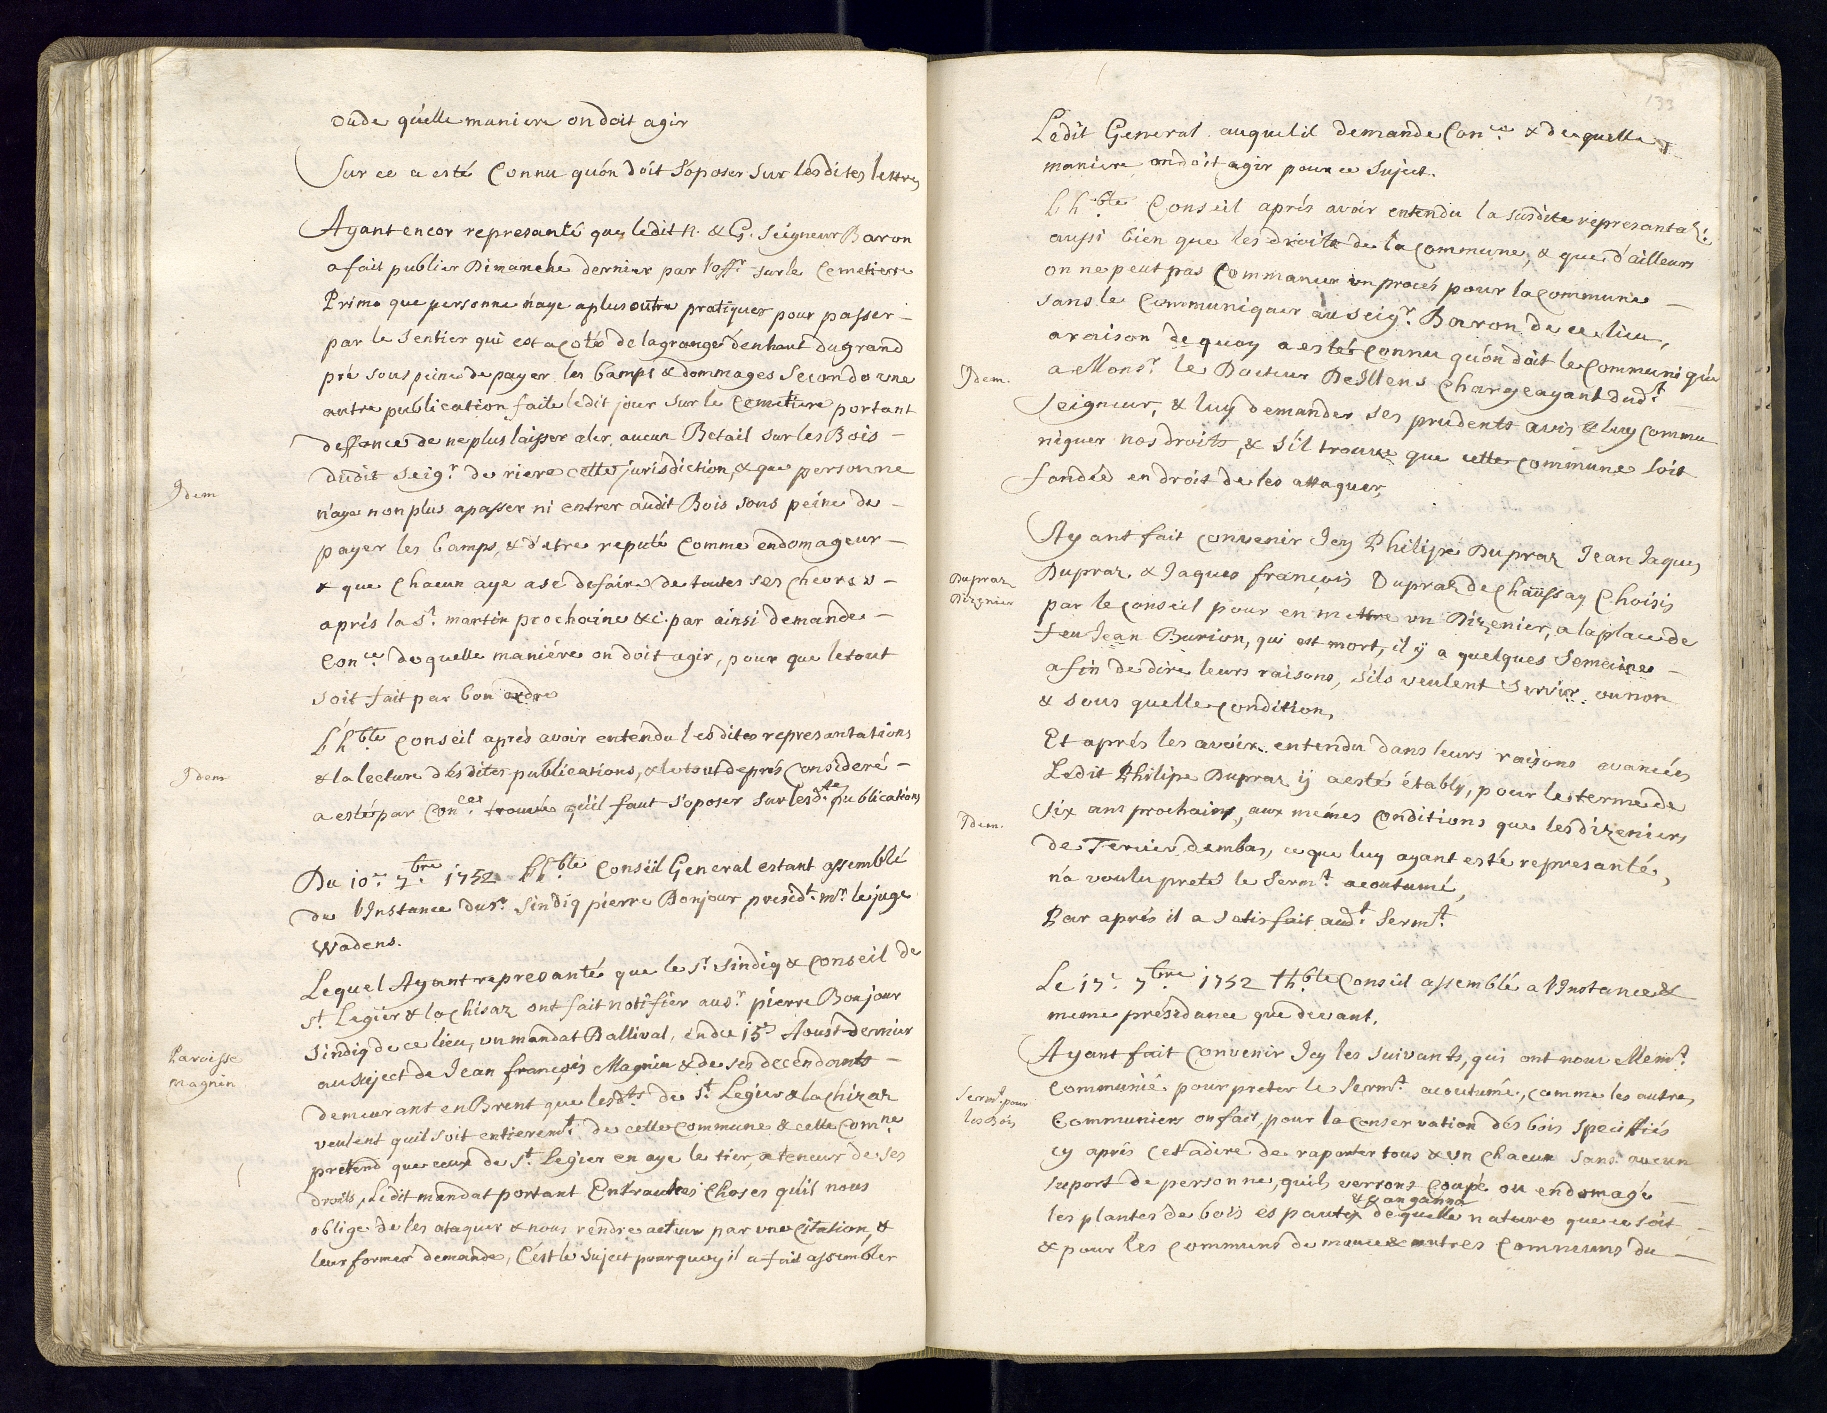 oude qu'elle maniere on doit agir
Sur ce a esté Connu qu'on doit s'oposer sur lesdites lettres
Ayant encor represanté que ledit n. & G. Seigneur Baron
a fait publier Dimanche dernier par l'offr. sur le Cemetiere
Primo que personne n'aye a plus outre pratiquer pour passer
par le Sentier qui est a coté de la grange d'enhaut du grand
pré sous peine de payer les bamps & dommages Secondo une
autre publication faite ledit jour sur le Cemetiere portant
deffence de ne plus laisser aler, aucun Betail sur les Bois
dudit Seigr. de riere cette jurisdiction, & que personne
Idem
n'aye non plus a passer ni entrer audit Bois sous peine de
payer les bamps, & d'etre reputé Comme endomageur
& que Chacun aye a se defaire de toutes ses Chevres
aprés la St. martin prochaine &c. par ainsi demande
Conce. de quelle maniére on doit agir, pour que le tout
soit fait par bon ordre
L'hble. Conseil aprés avoir entendu lesdites represantations
Idem
& la lecture desdites publications, & le tout de prés Consideré
a esté par Conces. trouvée qu'il faut s'oposer sur lesdtes. publications
Du 10e. 7bre. 1752 L'hble. Conseil General estant assemblé
de l'Instance du sr. Sindiq pierre Bonjour presidt. mr. le juge
Wadens.
Lequel Ayant represanté que le Sr. Sindiq & Conseil de
St. Legier & la Chisaz ont fait notifier au sr. pierre Bonjour
Sindiq de ce lieu, un mandat Ballival, en du 15e. Aoust dernier
Paroisse
magnin
au suject de Jean françois Magnin & de ses decendants
demeurant en Brent que lesdts. de St. Legier & la Chizaz
veulent qu'il soit entieremt. de cette Commune & cette Comne.
pretend que ceux de St. Legier en aye le tier, a teneur de ses
droits, Ledit mandat portant Entrautres Choses qu'il nous
oblige de les ataquer & nous rendre acteur par une Citation, &
leur former demande, C'est le Suject pourquoy il a fait assembler
133
Ledit General auquel il demande Conce. & de quelle
maniere on doit agir pour ce Suject.
L'hble. Conseil aprés avoir entendu la susdite represantaõ:
aussi bien que les droits de la Commune, & que d'ailleurs
on ne peut pas Commancer un procés pour la Commune
sans le Communiquer au Seigr. Baron de ce lieu,
a raison de quoy a estéé Connu qu'on doit le Communiquer
Idem.
a Monsr. le Docteur DeIllens Chargeayant dudt.
Seigneur, & luy demander ses prudents avis & luy Commu
niquer nos droits, & s'il trouve que cette Commune soit
fondée en droit de les attaquer,
Ayant fait Convenir Icy Philipe Dupraz Jean Jaques
Dupraz
Dizenier
Dupraz & Jaques françois Dupraz de Chaussay Choisis
par le Conseil pour en mettre un Dizenier, a la place de
feu Jean Burion, qui est mort, il y a quelques Semaines
afin de dire leurs raisons, s'ils veulent Servir ou non
& sous quelle Condition,
Et aprés les avoir entendu dans leurs raisons avancées
Ledit Philipe Dupraz y a esté étably, pour le terme de
Idem.
six ans prochains, aux mémes Conditions que les dizeniers
de Tercier, dembas, ce que luy ayant esté represanté,
n'a voulu preter le Sermt. acoutumé,
Par aprés il a satisfait audt. Sermt.
Le 17e. 7bre. 1752 L'hble. Conseil assemblé a l'Instance &
meme présidance que devant.
Ayant fait Convenir Icy les suivants, qui ont nouvellemt.
Sermt. pour
les Bois
Communié pour preter le Sermt. acoutumé, comme les autres
Communiers on fait, pour la Conservation des bois specifiés
cy aprés C'est a dire de raporter tous & un Chacun sans aucun
suport de personne, qu'ils verrons Coupé ou endomagé
& gangannà
les plantes de bois es pautex de quelle nature que ce soit
& pour les Communs de mouce & autres Communs du